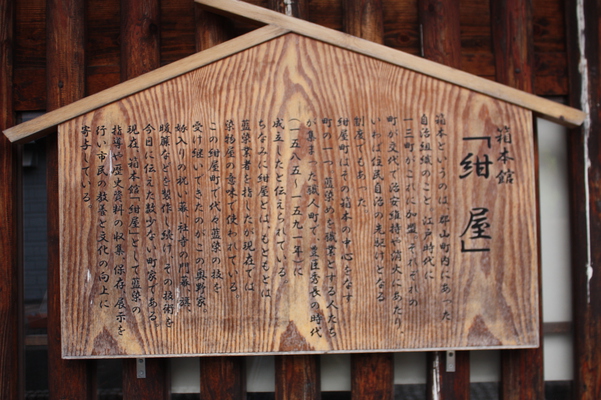 箱本館
「紺屋」
箱本というのは、郡山町内にあった
自治組織のこと。江戸時代に
一三町がこれに加盟、それぞれの
町が交代で治安維持や消火にあたり、
いわば住民自治の先駆けとなる
制度でもあった。
紺屋町はその箱本の中心をなす
町の一つ。藍染めを職業とする人たち
が集まった職人町で、豊臣秀長の時代
(一五八五~一五九一年)に
成立したと伝えられている。
ちなみに紺屋とは、もともとは
藍染業者を指したが現在では、
染物屋の意味で使われている。
この紺屋町で代々藍染の技を
受け継いできたのがこの奥野家。
嫁入りの祝い幕、社寺の門幕、旗、
暖簾などを製作し続け、その技術を
今日に伝えた数少ない町家である。
現在、箱本館「紺屋」として藍染の
指導や歴史資料の収集、保存、展示を
行い市民の教養と文化の向上に
寄与している。